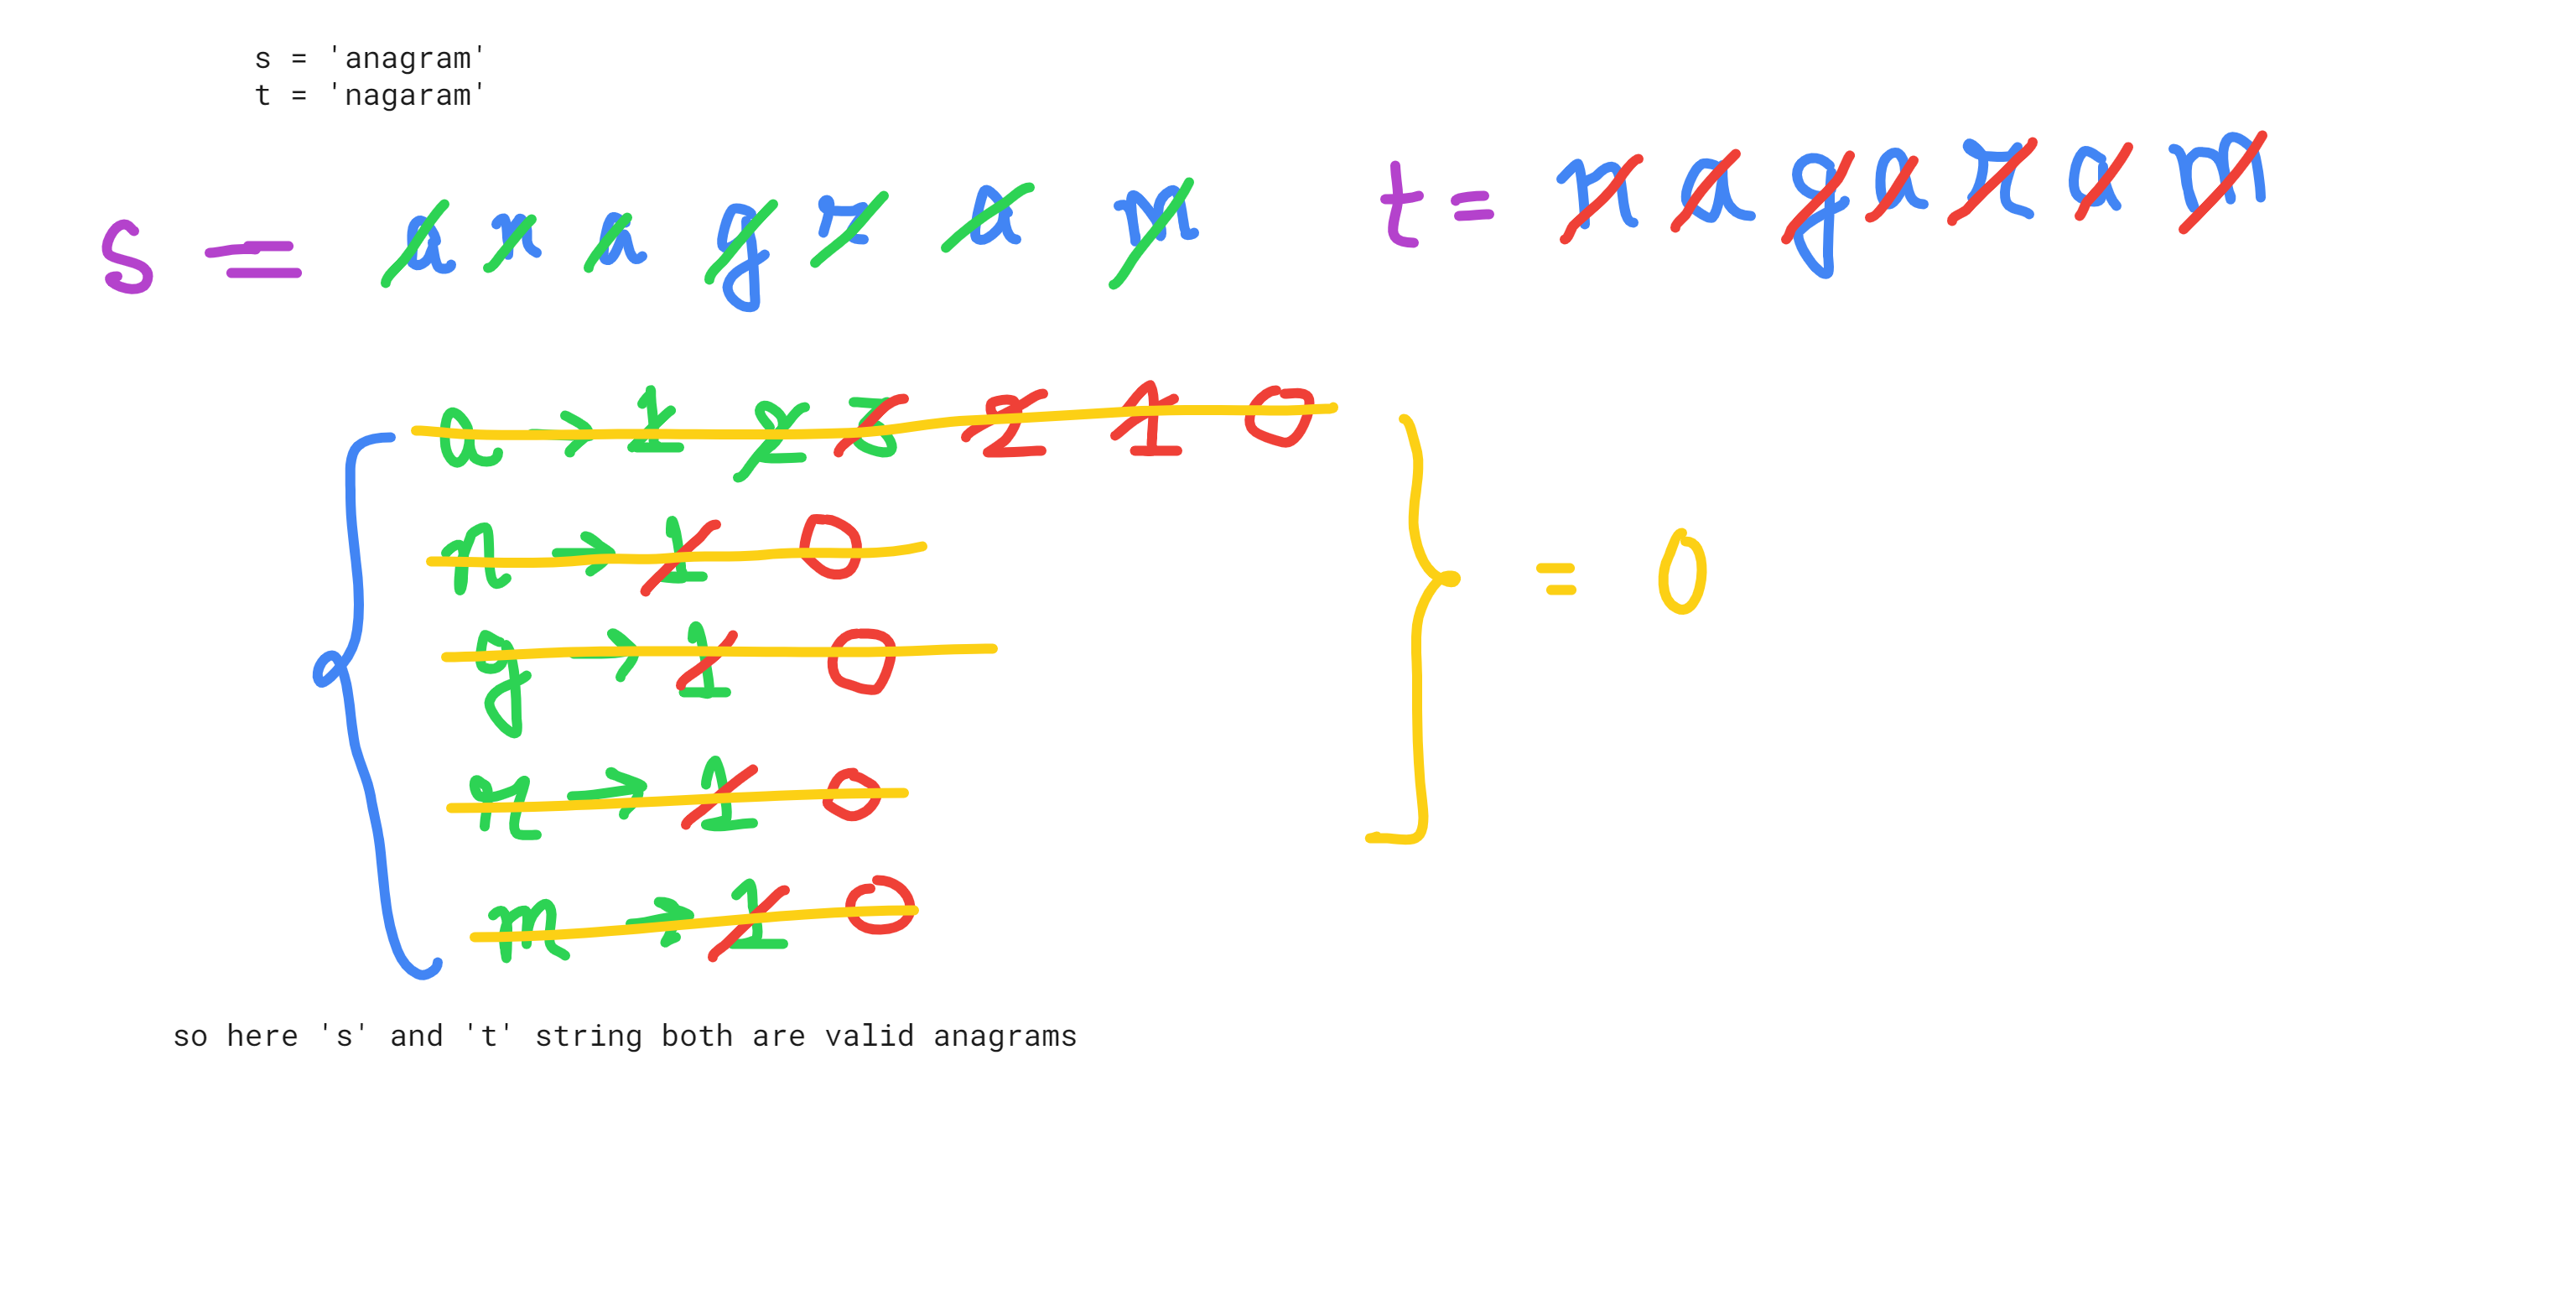 s = 'anagram'
t = 'nagaram'
s = a n a g r a m
t = n a g a r a m
a → 1 2 3 2 1 0
n → 1 0
g → 1 0
r → 1 0
m → 1 0
= 0
so here 's' and 't' string both are valid anagrams